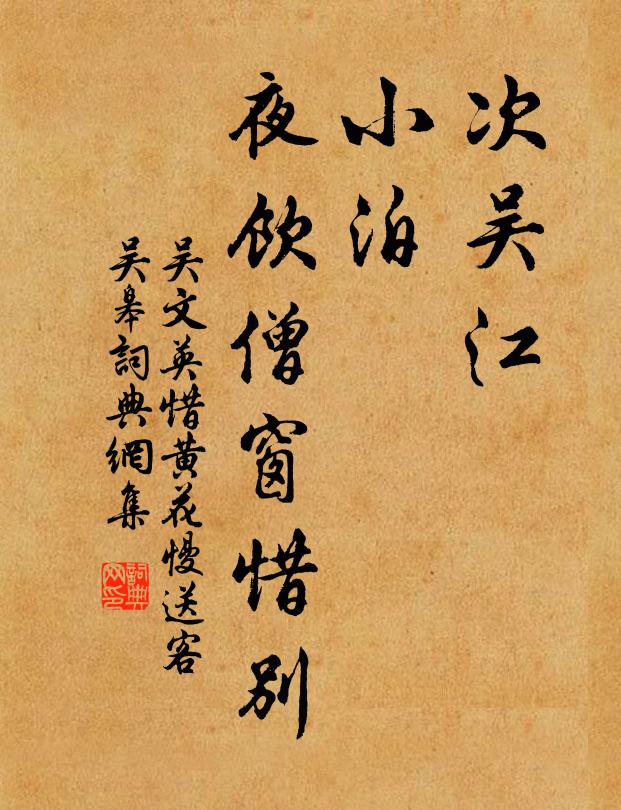 次吴江
小泊
夜飲僧窗惜別
吴文英惜黄花慢送客
吴皋詞典網集
詞典网印